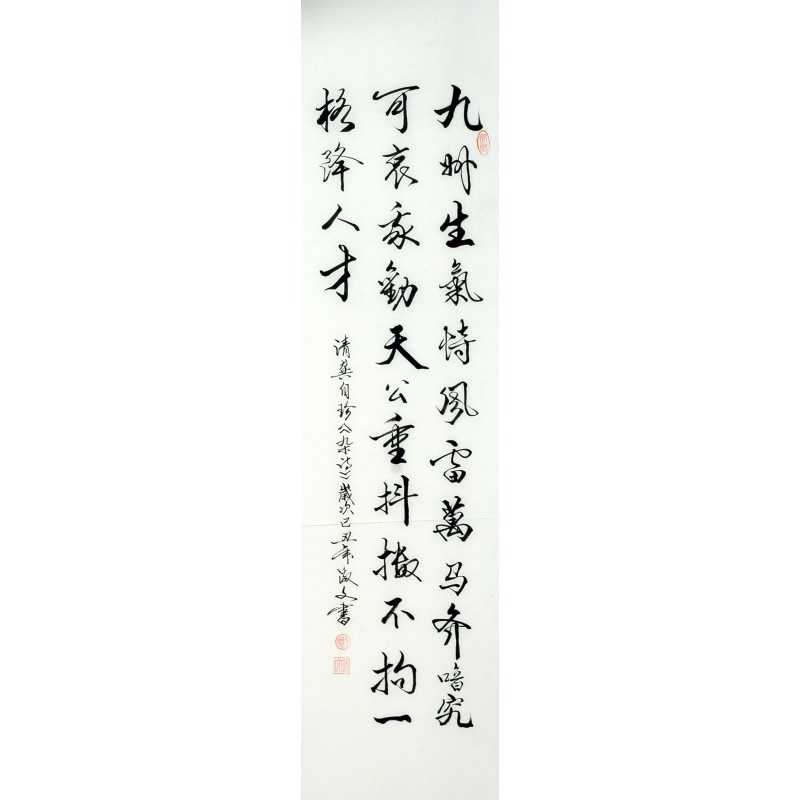 九州生氣恃風雷萬马齐喑究
可哀我勸天公重抖擻不拘一
格降人才
清龔自珍《杂诗》歲次己丑年淑文書